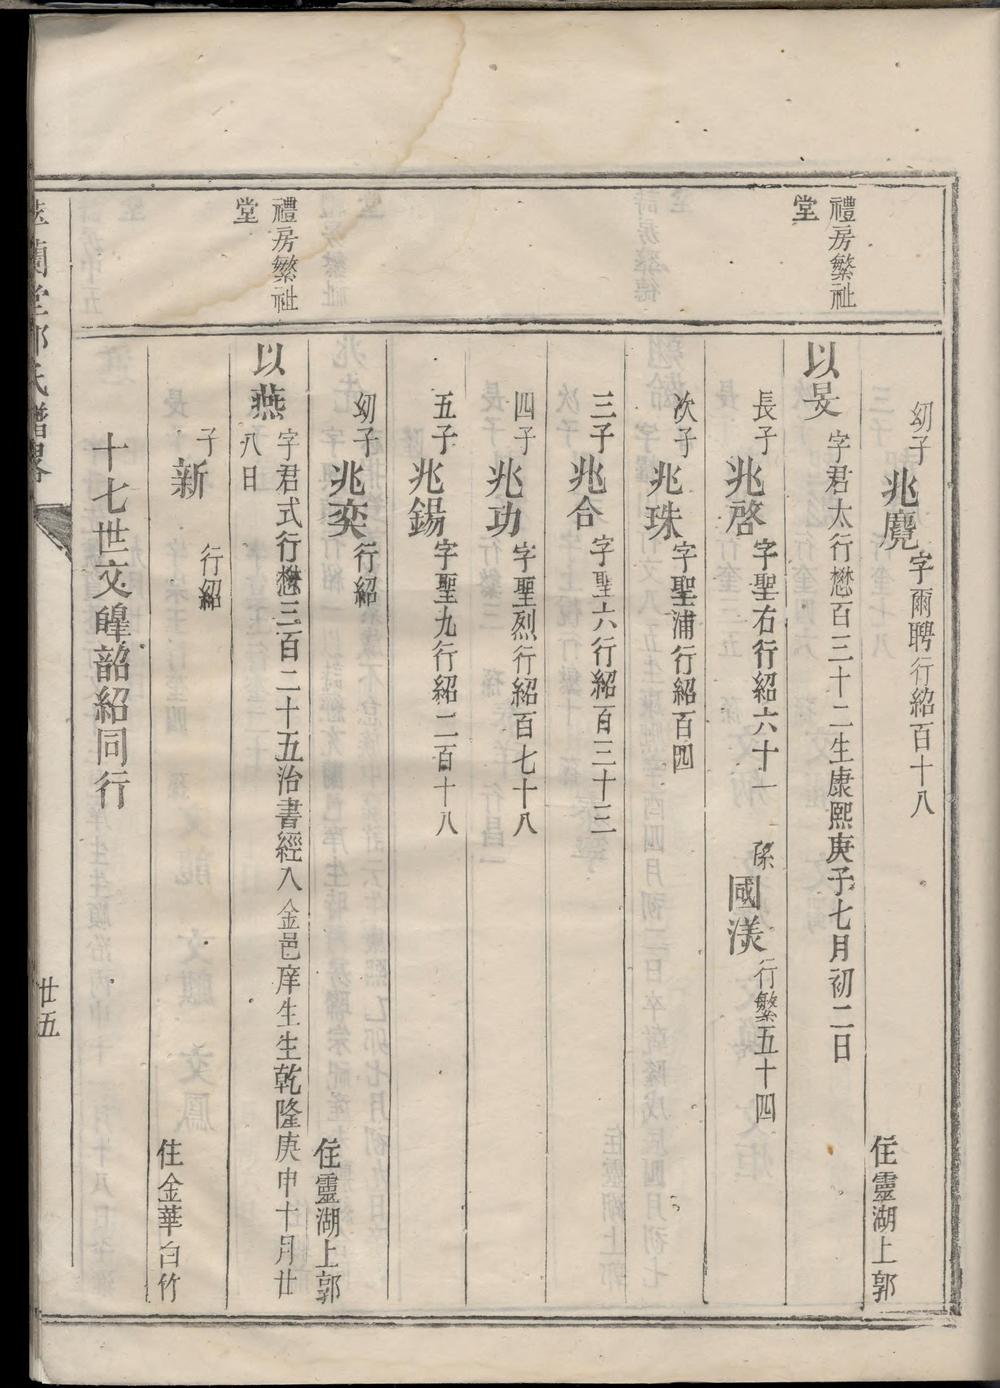 幼子兆麑字爾聘行紹百十八
住靈湖上郭
禮房繁祉堂
以旻字君太行懋百三十二生康熙庚子七月初二日
長子兆啓字聖右行紹六十一 孫國漾行繁五十四
次子兆珠字聖浦行紹百四
三子兆合字聖六行紹百三十三
四子兆功字聖烈行紹百七十八
五子兆錫字聖九行紹二百十八
幼子兆奕行紹
住靈湖上郭
禮房繁祉堂
以燕字君式行懋三百二十五治書經入金邑庠生生乾隆庚申十月廿
八日
子新行紹
住金華白竹
十七世文皞韶紹同行
蘭堂郭氏譜畧
廿五